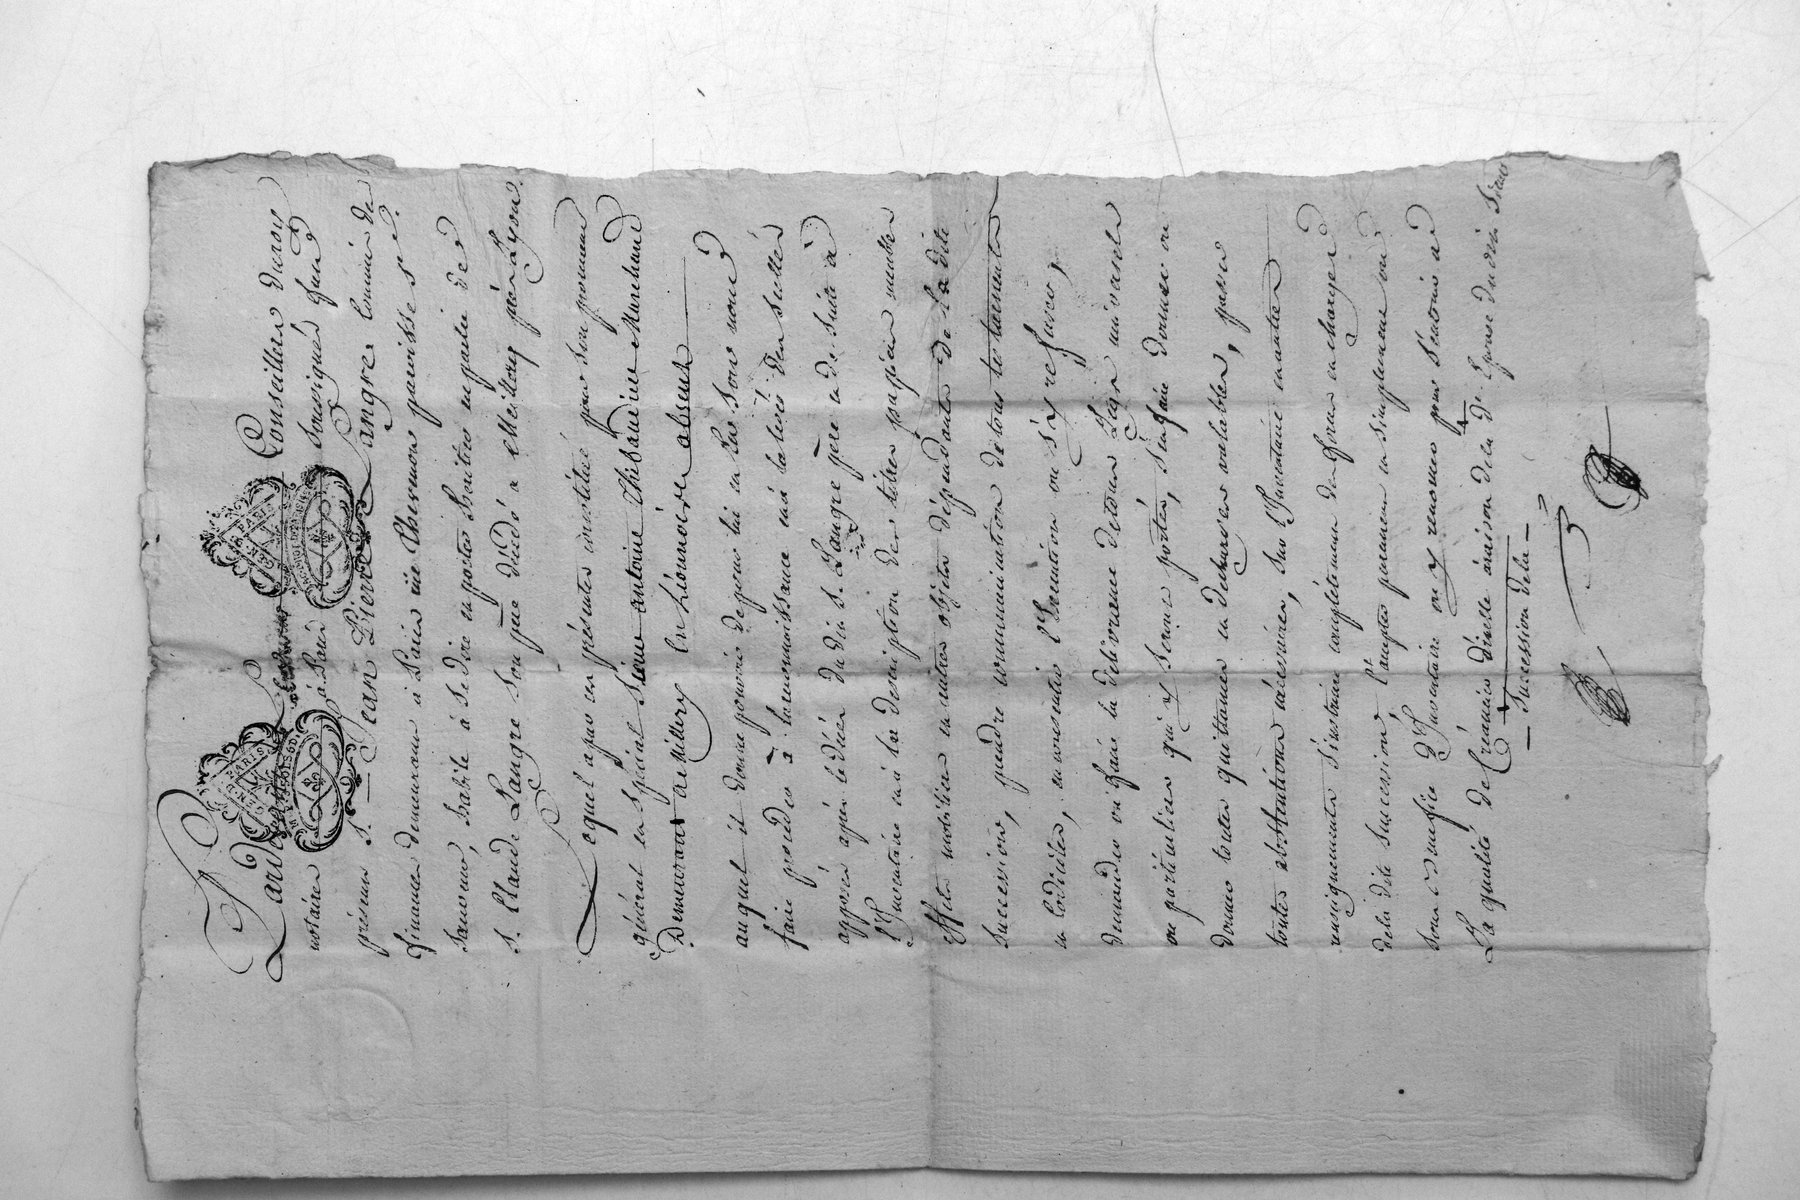 Pardevant les Conseillers du roy
notaires à Paris soussignés fut
présent S. Jean Pierre Langre Commis de
finances demeurant à Paris rüe Thevenot paroisse St.
Sauveur, habile à se dire et porter héritier en partie de
S. Claude Langre son père décédé à Millery près Lyon
Lequel a par ces présentes constitué pour son procureur
général et spécial Sieur antoine Thibaudier Marchand
Demeurant a Millery en Lionnois absent
auquel il donne pouvoir de pour lui et en son nom
faire procéder à la reconnoissance et à la levée des scellés
apposés après le décès du dit S. Langre père et de suite à
l'Inventaire et à la description des titres papiers meubles
effets mobiliers et autres objets dépendants de la dite
succession, prendre communication de tous testamens
et Codiciles, en consentir l'Exécution ou s'y refuser,
demander ou faire la délivrance de tous Legs universels
ou particuliers qui y seront portés, s'en faire donner ou
donner toutes quittances et decharges valables, passer
toutes obstentions nécessaires, sur l'Inventaire
renseignements s'instruire complétement des forces et charges
de la dite succession l'accepter purement et simplement ou
sous bénéfice d'Inventaire ou y renoncer pour s'en tenir à
La qualité de Créancier d'icelle à raison de la de Epouse du dit Sieur
succession de la